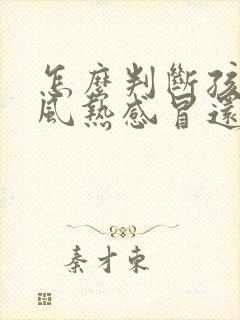 怎麼判斷孩
風熱感冒還
秦才東